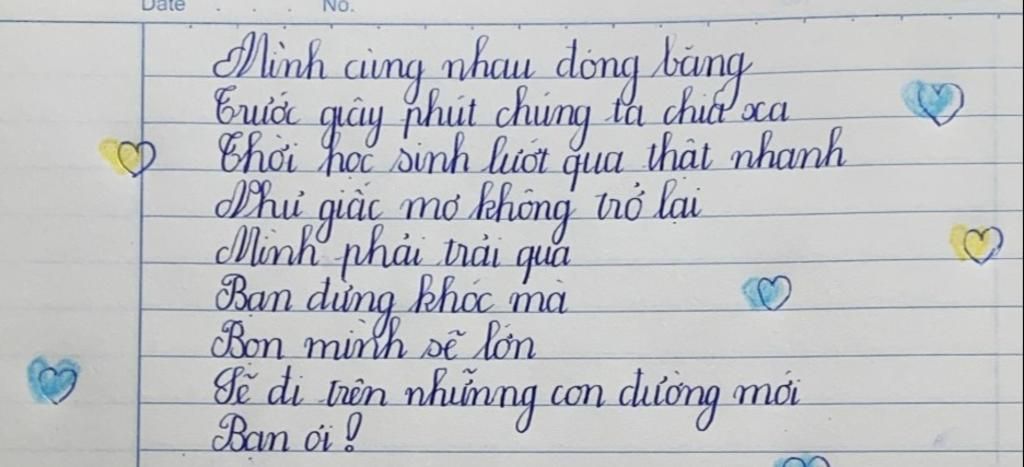 Date . . . No.
Mình cùng nhau đóng băng
Trước giây phút chúng ta chia xa
Thời học sinh lướt qua thật nhanh
Như giấc mơ không trở lại
Mình phải trải qua
Bạn đừng khóc mà
Bọn mình sẽ lớn
Sẽ đi trên nhữnng con đường mới
Bạn ơi!